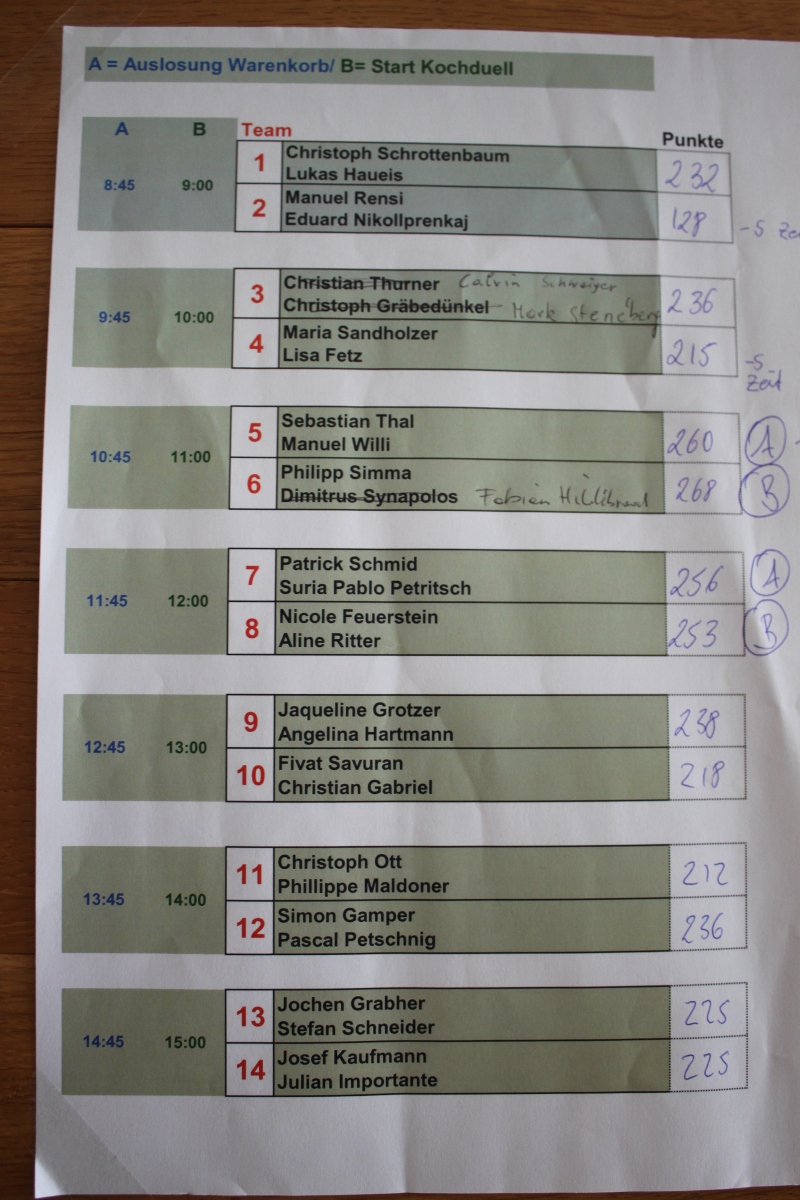 A = Auslosung Warenkorb/ B= Start Kochduell
A B Team Punkte
8:45 9:00
1 Christoph Schrottenbaum
Lukas Haueis 232
2 Manuel Rensi
Eduard Nikollprenkaj 128 -5 Zei
9:45 10:00
3 Christian Thurner Calvin Schweiger
Christoph Gräbedünkel Mark Steneberg 236
4 Maria Sandholzer
Lisa Fetz 215 -5
Zeit
10:45 11:00
5 Sebastian Thal
Manuel Willi 260 A
6 Philipp Simma
Dimitrus Synapolos Fabian Hillibrand 268 B
11:45 12:00
7 Patrick Schmid
Suria Pablo Petritsch 256 A
8 Nicole Feuerstein
Aline Ritter 253 B
12:45 13:00
9 Jaqueline Grotzer
Angelina Hartmann 238
10 Fivat Savuran
Christian Gabriel 218
13:45 14:00
11 Christoph Ott
Phillippe Maldoner 212
12 Simon Gamper
Pascal Petschnig 236
14:45 15:00
13 Jochen Grabher
Stefan Schneider 225
14 Josef Kaufmann
Julian Importante 225